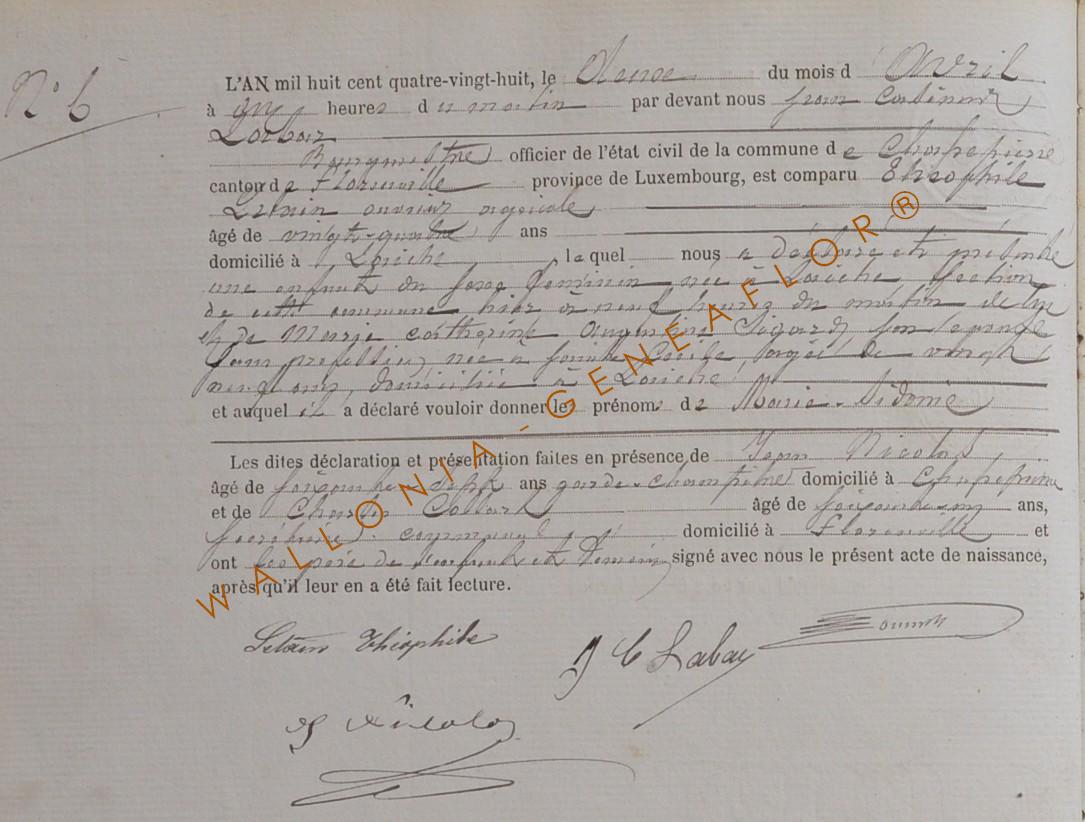 N° 6
L'AN mil huit cent quatre-vingt-huit, le onze du mois d' Avril
à heures du matin par devant nous Jean
Bourgmestre officier de l'état civil de la commune de Chassepierre
canton de Florenville province de Luxembourg, est comparu Théophile
ouvrier agricole
âgé de vingt-quatre ans
domicilié à Laiche, lequel nous a déclaré et présenté
une enfant du sexe féminin née à Laiche section
de cette commune hier à neuf heures du matin de lui
et de Marie Catherine Sigard son épouse
sans profession née à Sainte Cécile, âgée de vingt
cinq ans, domiciliée à Laiche
et auquel il a déclaré vouloir donner les prénoms de Marie-Sidonie
Les dites déclaration et présentation faites en présence de Jean Nicolas
âgé de soixante sept ans garde-champêtre domicilié à Chassepierre
et de Charles âgé de ans,
secrétaire communal domicilié à Florenville et
ont les père de l'enfant et témoins signé avec nous le présent acte de naissance,
après qu'il leur en a été fait lecture.
Théophile
J C Labay
J Nicolas
WALLONIA-GENEAFLOR®